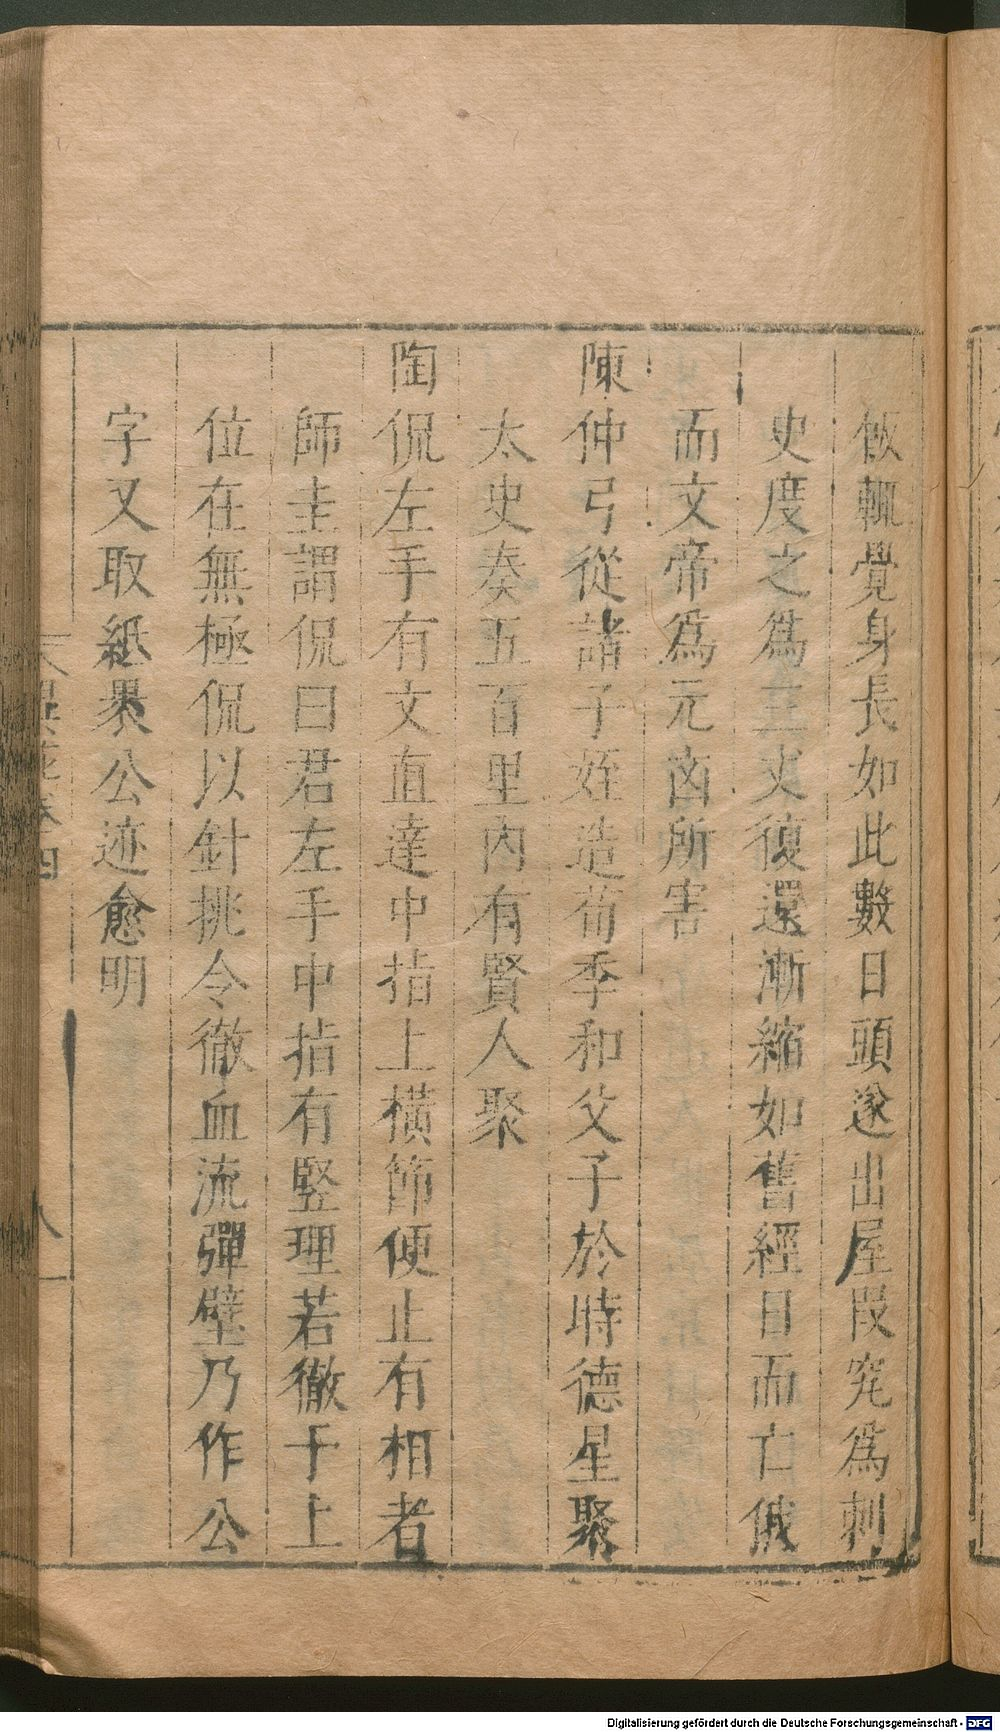 飯輒覺身長如此數日頭遂出屋段究爲刺
史度之爲三丈復還漸縮如舊經日而亡俄
而文帝爲元凶所害
陳仲弓從諸子姪造荀季和父子於時德星聚
太史奏五百里內有賢人聚
陶侃左手有文直達中指上橫節便止有相者
師圭謂侃曰君左手中指有竪理若徹于上
位在無極侃以針挑令徹血流彈壁乃作公
字又取紙裹公迹愈明
卷四
八
Digitalisierung gefördert durch die Deutsche Forschungsgemeinschaft - DFG